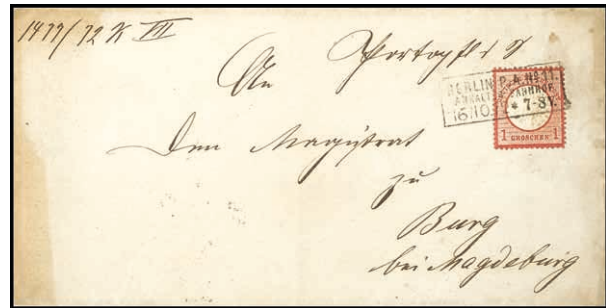 1477/72 K VII
An
BERLIN P.A. No 11.
ANHALT. BAHNHOF
16 10 * 7-8 V.
1 GROSCHEN 1
den Magistrat
zu
Burg
bei Magdeburg